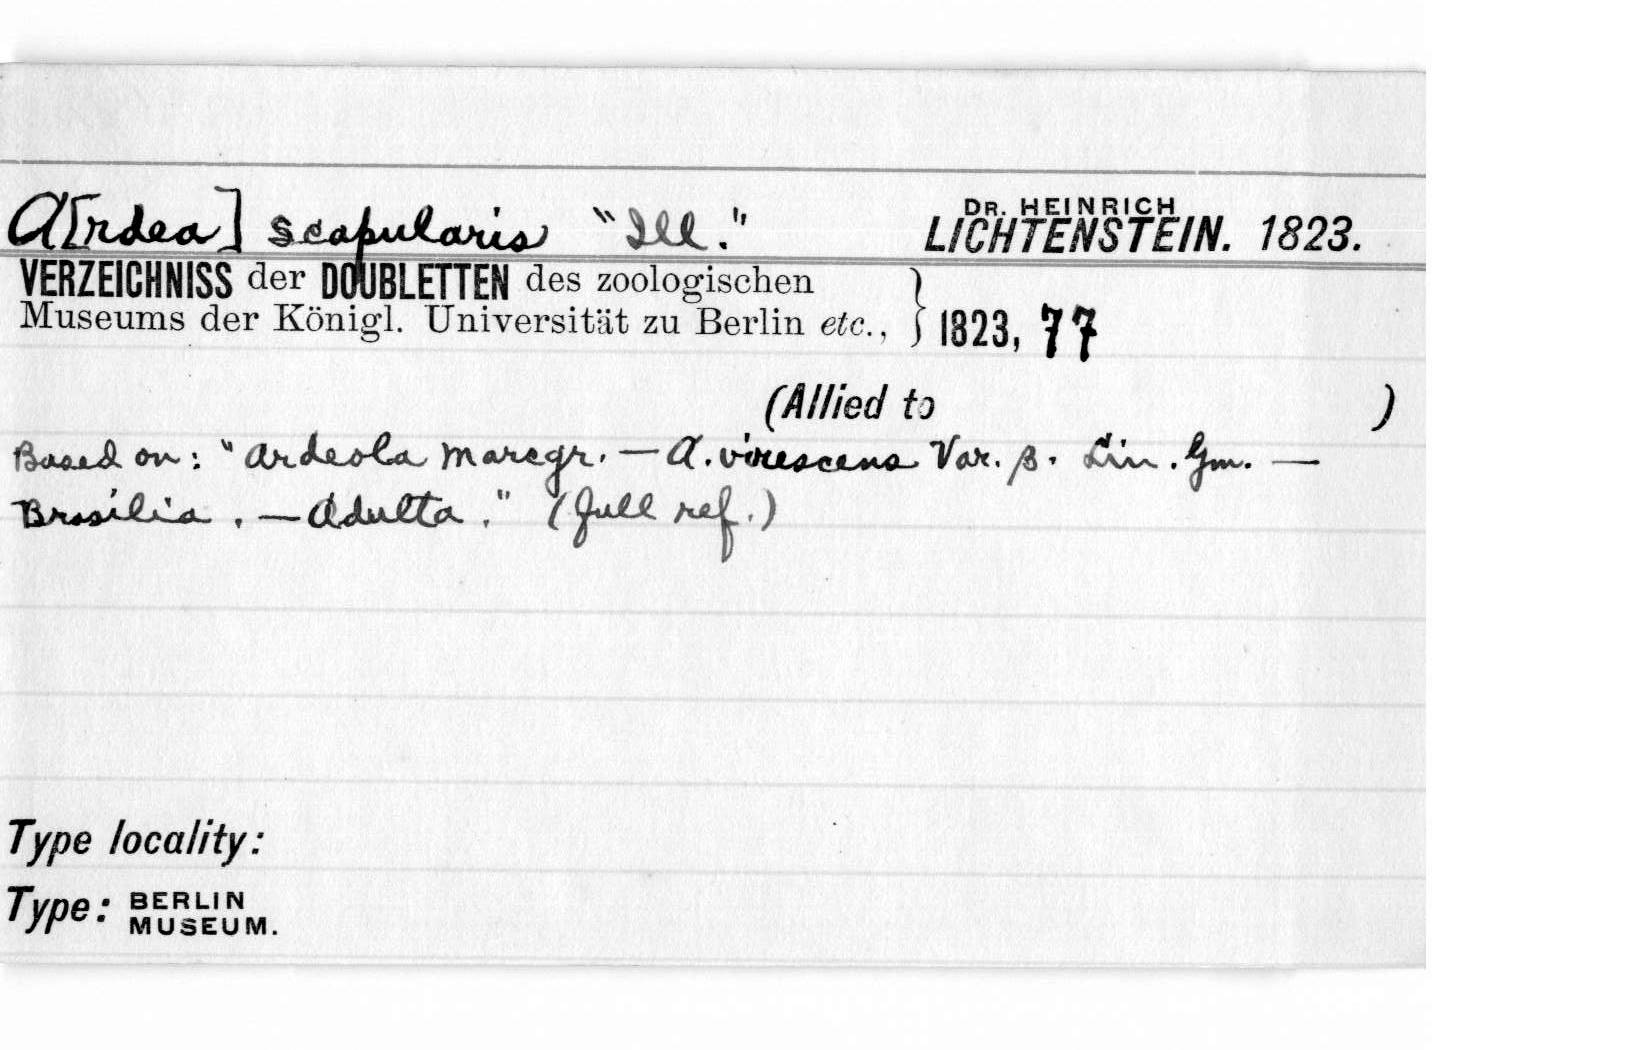 A[rdea] scapularis "Ill." DR. HEINRICH LICHTENSTEIN. 1823.
VERZEICHNISS der DOUBLETTEN des zoologischen
Museums der Königl. Universität zu Berlin etc., } 1823, 77
(Allied to )
Based on: "Ardeola Marcgr. — A. virescens Var. β. Lin. Gm. —
Brasilia. — Adulta." (full ref.)
Type locality:
Type: BERLIN MUSEUM.